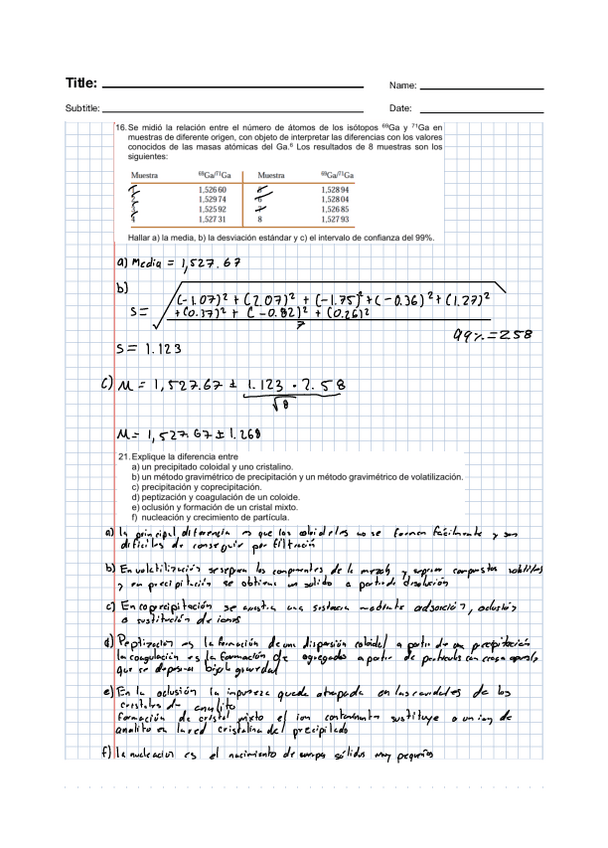 Title:
Name:
Subtitle:
Date:
16. Se midió la relación entre el número de átomos de los isótopos ⁶⁹Ga y ⁷¹Ga en
muestras de diferente origen, con objeto de interpretar las diferencias con los valores
conocidos de las masas atómicas del Ga.⁶ Los resultados de 8 muestras son los
siguientes:
Muestra ⁶⁹Ga/⁷¹Ga Muestra ⁶⁹Ga/⁷¹Ga
1,526 60 1,528 94
1,529 74 6 1,528 04
1,525 92 7 1,526 85
4 1,527 31 8 1,527 93
Hallar a) la media, b) la desviación estándar y c) el intervalo de confianza del 99%.
a) Media = 1,527.67
b)
S = √ (-1.07)² + (2.07)² + (-1.75)² + (-0.36)² + (1.27)²
+ (0.37)² + (-0.82)² + (0.26)²
7
99% = 258
S = 1.123
c) M = 1,527.67 ± 1.123 · 2.58
√8
M = 1,527.67 ± 1.268
21. Explique la diferencia entre
a) un precipitado coloidal y uno cristalino.
b) un método gravimétrico de precipitación y un método gravimétrico de volatilización.
c) precipitación y coprecipitación.
d) peptización y coagulación de un coloide.
e) oclusión y formación de un cristal mixto.
f) nucleación y crecimiento de partícula.
a) la principal diferencia es que los no se forman fácilmente y son
difíciles de conseguir por filtración
b) En los componentes de la mezcla y
y en precipitación se obtiene un solido a partir de disolución
c) En coprecipitación se una mediante adsorción, oclusión
o sustitución de iones
d) Peptización es la formación de una dispersión coloidal a partir de una precipitación
la coagulación es la formación de agregados a partir de particulas con
que se bajo gravedad
e) En la oclusión la impureza queda atrapada en las cavidades de los
cristales de analito
formación de cristal mixto el ion contaminante sustituye a un ion de
analito en la red cristalina del precipitado
f) la nucleacion es el nacimiento de sólidos muy pequeños